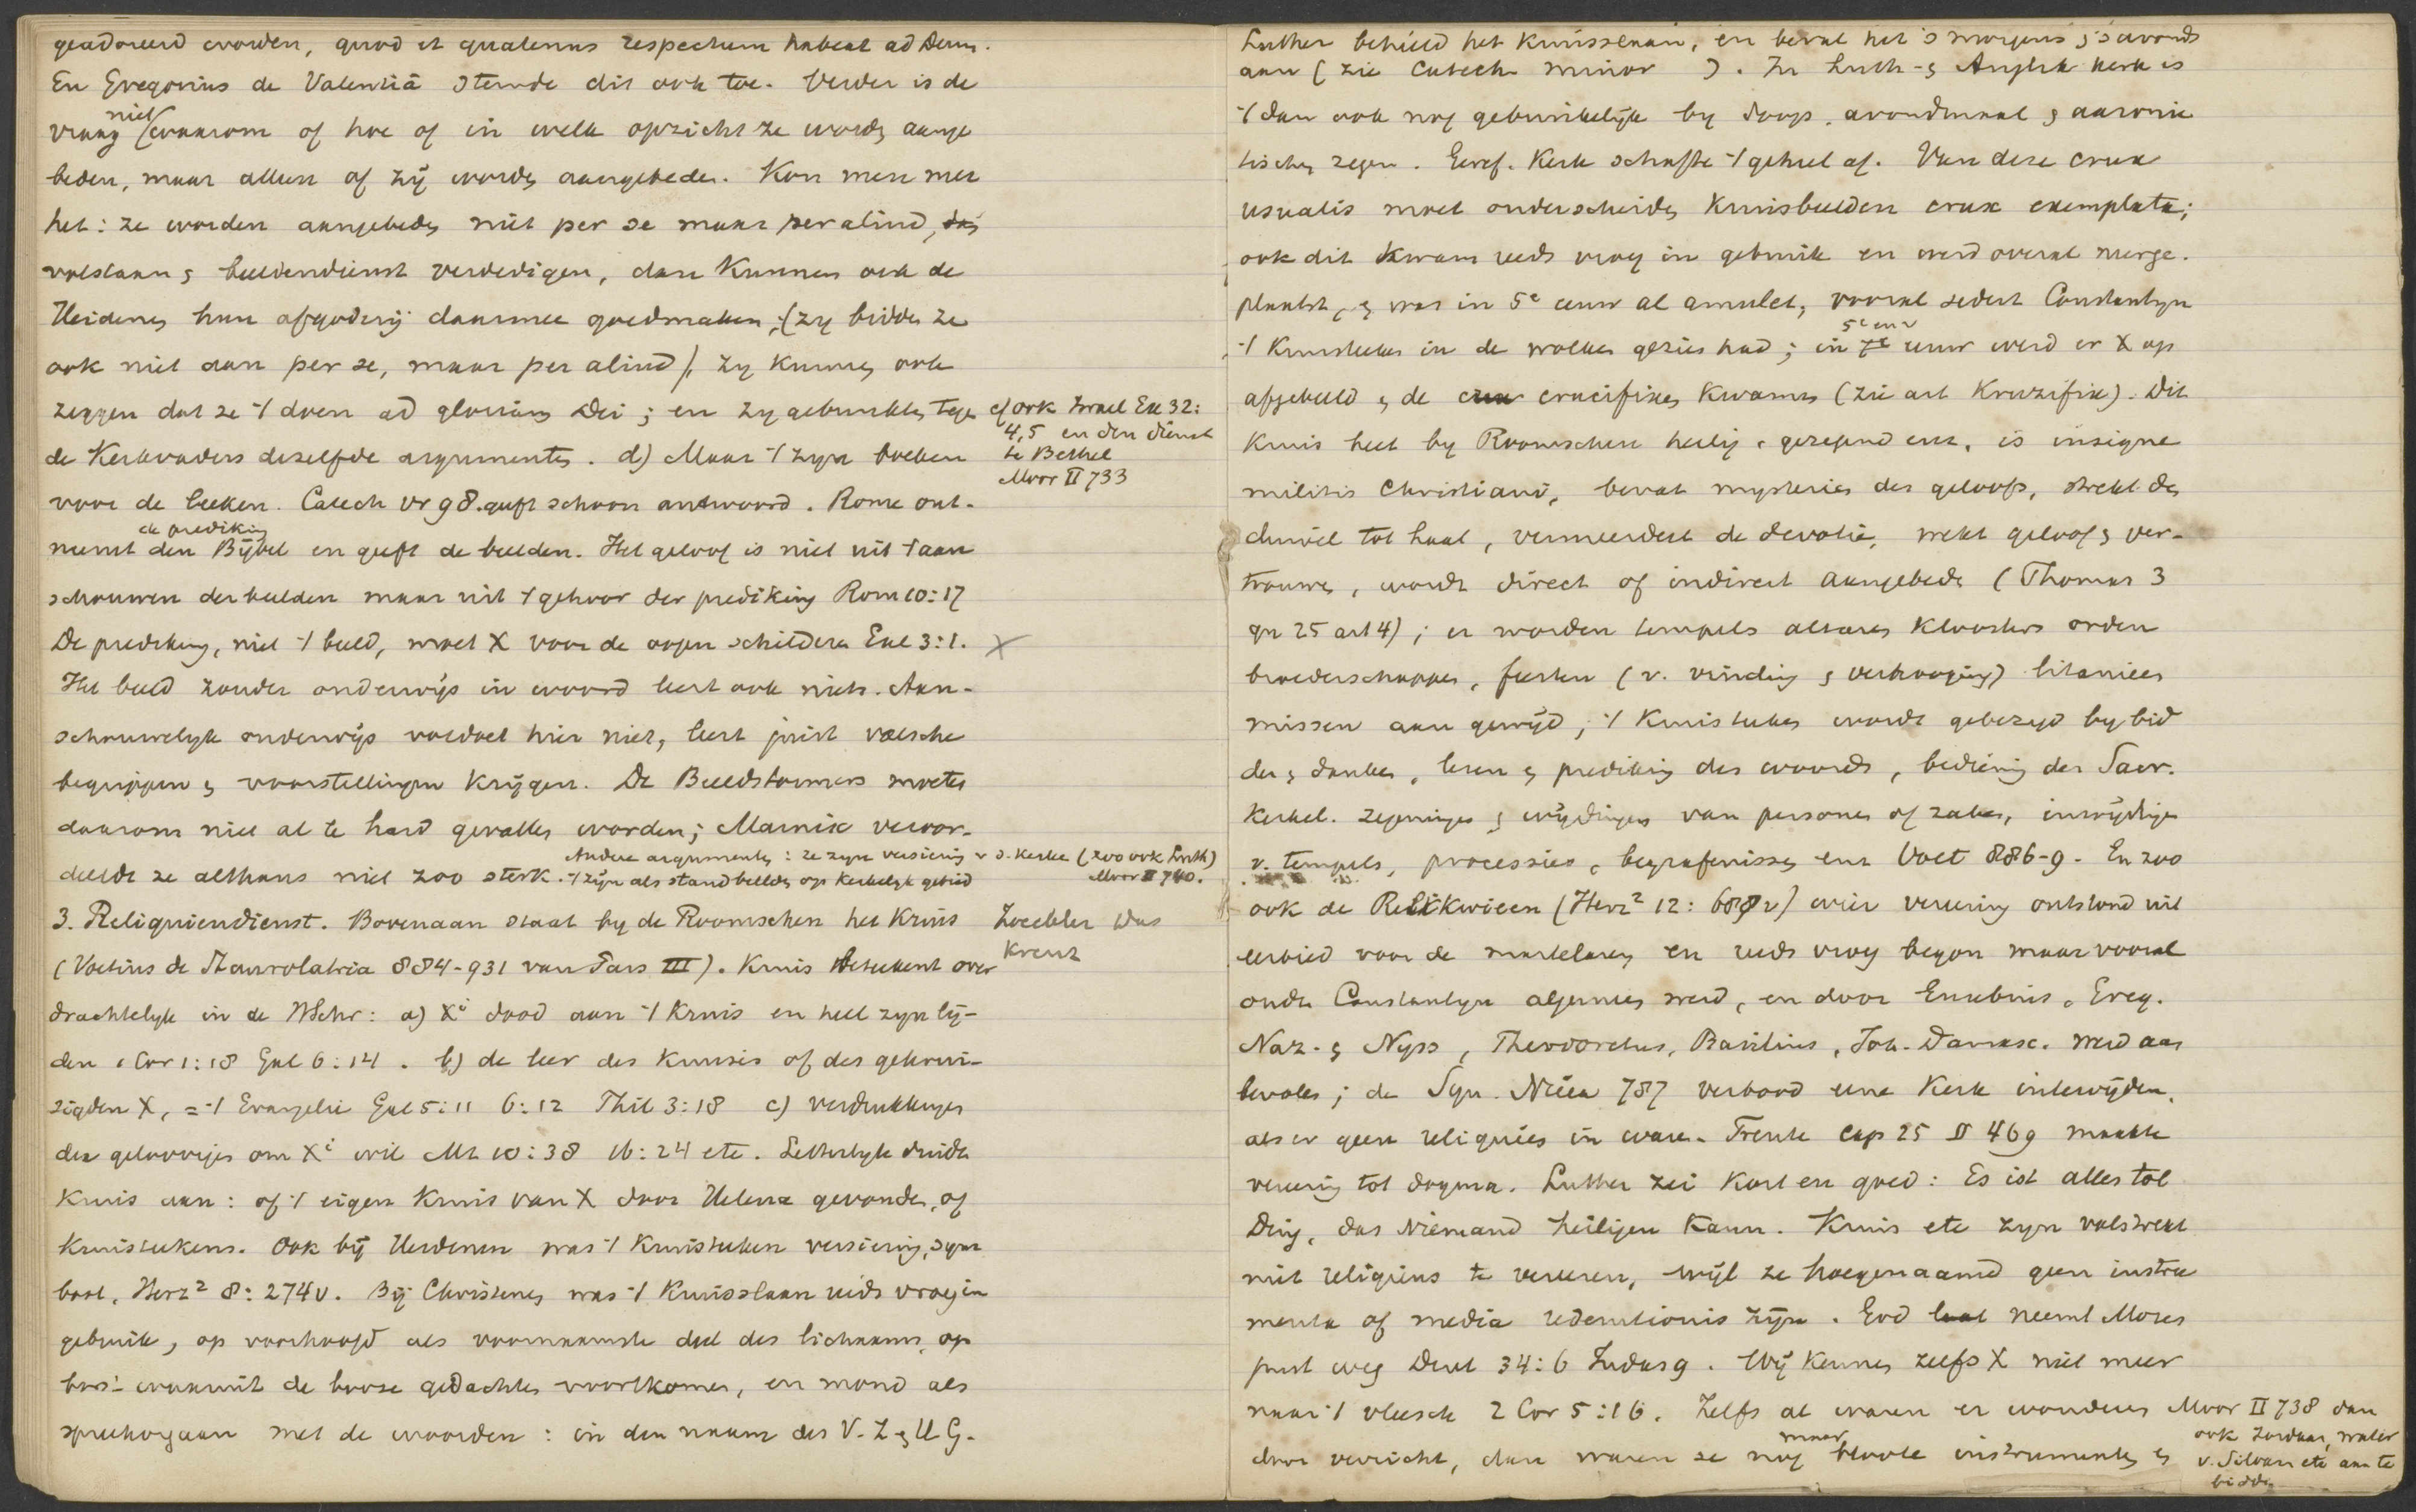 geadoreerd worden, quod et quatenus respectum habeat ad Deum.
En Gregorius de Valentiâ stemde dit ook toe. Verder is de
vraag niet (waarom of hoe of in welk opzicht ze worden aange
beden, maar alleen of zij worden aangebeden. Kon men met
het: ze worden aangebeden niet per se maar per aliud,
volstaan & beeldendienst verdedigen, dan kunnen ook de
Heidenen hun afgoderij daarmee goedmaken; (zy bidden ze
ook niet aan per se, maar per aliud), zy kunnen ook
zeggen dat ze 't doen ad gloriam Dei; en zy gebruikten tegen
cf ook Israel Ex 32:
4,5 en den dienst
te Bethel
Moor II 733
de Kerkvaders dezelfde argumenten. d) Maar 't zyn boeken
voor de leeken. Catech Vr 98. geeft schoon antwoord. Rome ont-
de prediking
neemt den Bijbel en geeft de beelden. Het geloof is niet uit 't aan
schouwen der beelden maar uit 't gehoor der prediking Rom 10:17
De prediking, niet 't beeld, moet X voor de oogen schilderen Gal 3:1. X
Het beeld zonder onderwijs in woord leert ook niets. Aan-
schouwelyk onderwijs voldoet hier niet, leert juist valsche
begrippen & voorstellingen krijgen. De Beeldstormers moeten
daarom niet al te hard gevallen worden; Marnix veroor-
deelde ze althans niet zoo sterk.
Andere argumenten: ze zyn versiering v d. kerken (zoo ook Luth)
't zijn als standbeelden op kerkelyk gebied Moor II 740.
3. Reliquiendienst. Bovenaan staat by de Roomschen het Kruis
Zoeckler Das
Kreuz
(Voetius de Staurolatria 884-931 van Pars III). Kruis beteekent over
drachtelyk in de HSchr: a) Xi dood aan 't Kruis en heel zyn lij-
den 1 Cor 1:18 Gal 6:14. b) de leer des Kruises of des gekrui-
zigden X, = 't Evangelie Gal 5:11 6:12 Phil 3:18 c) verdrukkingen
der geloovigen om Xi wil Mt 10:38 16:24 etc. Letterlyk duidt
Kruis aan: of 't eigen Kruis van X door Helena gevonden, of
Kruisteekens. Ook bij Heidenen was 't Kruisteeken versiering, sym
bool, Herz² 8:274v. Bij Christenen was 't Kruisslaan reeds vroeg in
gebruik, op voorhoofd als voornaamste deel des lichaams, op
borst waaruit de booze gedachten voortkomen, en mond als
spreekorgaan met de woorden: in den naam des V. Z & H G.
Luther behield het Kruisslaan, en beval het 's morgens & 's avonds
aan (zie Catech minor ). In Luth- & Anglik kerk is
't dan ook nog gebruikelijk by doop, avondmaal & aaroni
tischen zegen. Geref. Kerk schafte 't geheel af. Van deze crux
usualis moet onderscheiden Kruisbeelden crux exemplata;
ook dit kwam reeds vroeg in gebruik en werd overal neerge-
plaatst, & was in 5e eeuw al amulet, vooral sedert Constantyn
't Kruisteeken in de wolken gezien had; in 5e en v 7e eeuw werd er X op
afgebeeld & de crucifixen kwamen (zie art Kruzifix). Dit
Kruis heet by Roomschen heilig, gezegend enz, is insigne
militis Christiani, bevat mysterien des geloofs, strekt den
duivel tot haat, vermeerdert de devotie, wekt geloof & ver-
trouwen, wordt direct of indirect aangebeden (Thomas 3
qu 25 art 4); er worden tempels altaren kloosters orden
broederschappen, feesten (v. vinding & verhooging) litanieen
missen aan gewijd; 't Kruisteeken wordt gebezigd by bid
den & danken, lezen & prediking des woords, bediening der Sacr.
Kerkel. zegeningen & wijdingen van personen of zaken, inwijdingen
v. tempels, processies, begrafenissen enz Voet 886-9. En zoo
ook de Relikwieen (Herz² 12: 689v) wier vereering ontstond uit
eerbied voor de martelaren en reeds vroeg begon maar vooral
onder Constantyn algemeen werd, en door Eusebius, Greg.
Naz. & Nyss, Theodoretus, Basilius, Joh. Damasc. werd aan
bevolen; de Syn. Nicea 787 verbood eene Kerk intewijden,
als er geen reliquies in waren. Trente cap 25 II 469 maakte
vereering tot dogma. Luther zei kort en goed: Es ist alles tot
Ding, das Niemand heiligen kann. Kruis etc zyn volstrekt
niet religieus te vereeren, wijl ze hoegenaamd geen instru
menta of media redemtionis zijn. God neemt Mozes
juist weg Deut 34:6 Judas 9. Wij kennen zelfs X niet meer
naar 't vleesch 2 Cor 5:16. Zelfs al waren er wonderen
door verricht, dan waren ze nog maar bloote instrumenten &
Moor II 738 dan
ook Jordaan, water
v. Siloam etc aan te
bidden